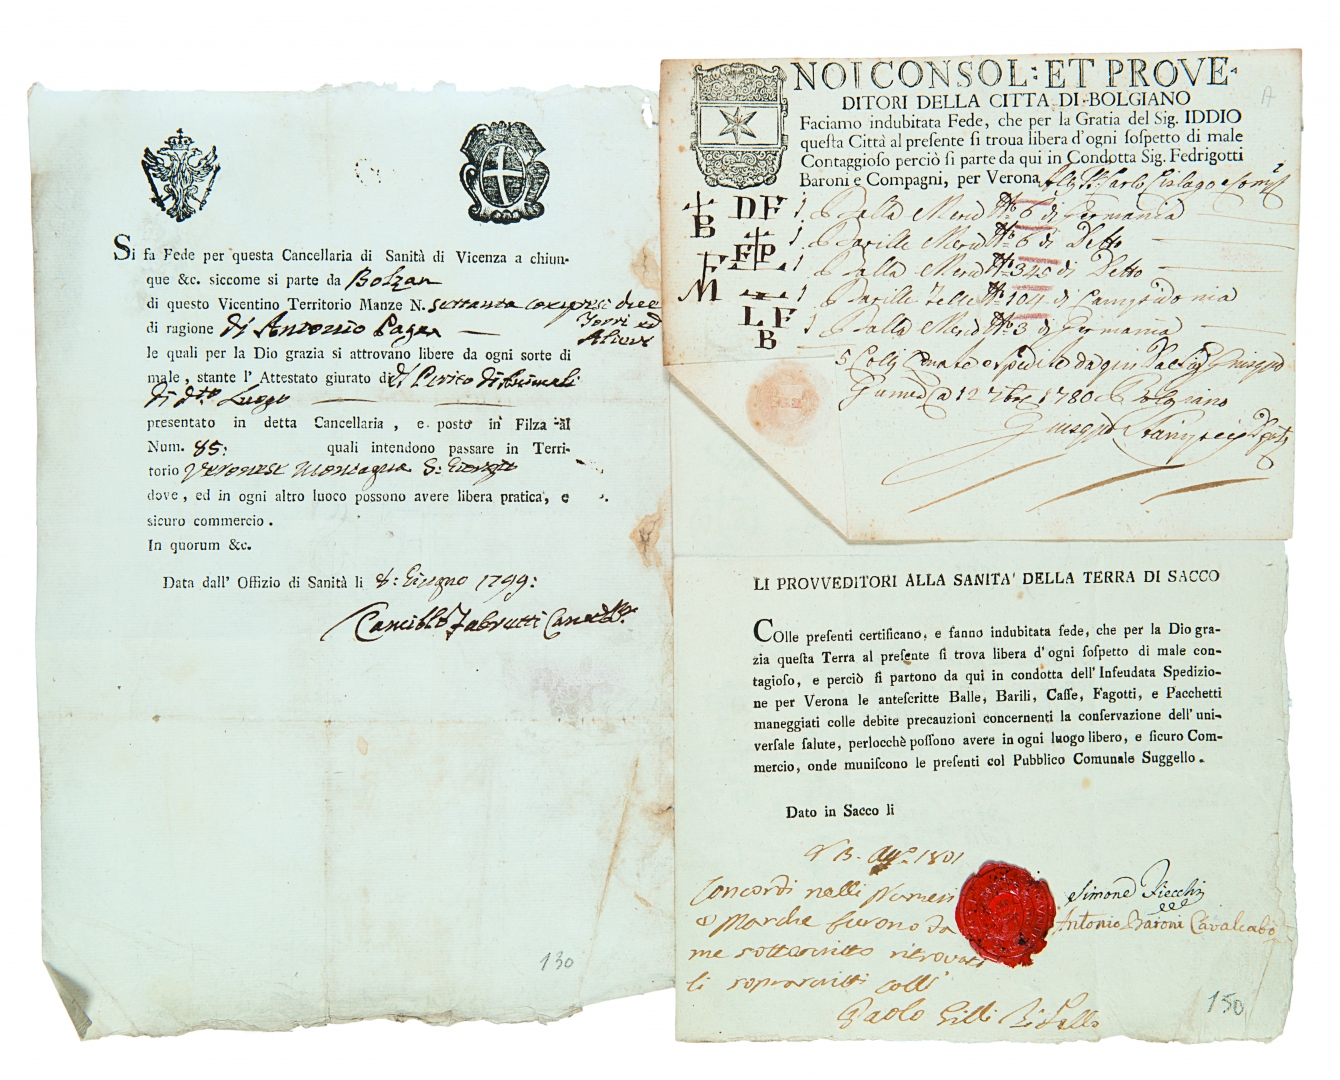 Si fa Fede per questa Cancellaria di Sanità di Vicenza a chiun-
que &c. siccome si parte da Bolzan
di questo Vicentino Territorio Manze N. settanta compresi dieci
Torri ed
di ragione di Antonio Pagan
le quali per la Dio grazia si attrovano libere da ogni sorte di
male, stante l' Attestato giurato di Perito di Animali
di dto Luogo
presentato in detta Cancellaria, e posto in Filza al
Num. 85: quali intendono passare in Terri-
torio Veronese Montagna
dove, ed in ogni altro luoco possono avere libera pratica, e
sicuro commercio.
In quorum &c.
Data dall' Offizio di Sanità li 8: Giugno 1799:
130
NOI CONSOL: ET PROVE-
DITORI DELLA CITTA DI BOLGIANO
Faciamo indubitata Fede, che per la Gratia del Sig. IDDIO
questa Città al presente si troua libera d'ogni sospetto di male
Contaggioso perciò si parte da qui in Condotta Sig. Fedrigotti
Baroni e Compagni, per Verona Carlo Cislago e Compi
B DF 1 Balla Merci No 6 di Germania
1 Barille Merci No 6 di Detto
F FP 1 Balla Merci No 345 di Detto
M 1 Barille Telle No 104 di
LF 1 Balla Merci No 3 di Germania
B
5 Colly
12 7bre 1780 Bolgiano
LI PROVVEDITORI ALLA SANITA' DELLA TERRA DI SACCO
COlle presenti certificano, e fanno indubitata fede, che per la Dio gra-
zia questa Terra al presente si trova libera d' ogni sospetto di male con-
tagioso, e perciò si partono da qui in condotta dell' Infeudata Spedizio-
ne per Verona le antescritte Balle, Barili, Casse, Fagotti, e Pacchetti
maneggiati colle debite precauzioni concernenti la conservazione dell' uni-
versale salute, perlocchè possono avere in ogni luogo libero, e sicuro Com-
mercio, onde muniscono le presenti col Pubblico Comunale Suggello.
Dato in Sacco li
1801
Concordi nelli Numeri Simone Fiecchi
e Marche furono da Antonio Baroni Cavalcabò
me sottoscritto ritrovati
li soprascritti colli
Paolo
150